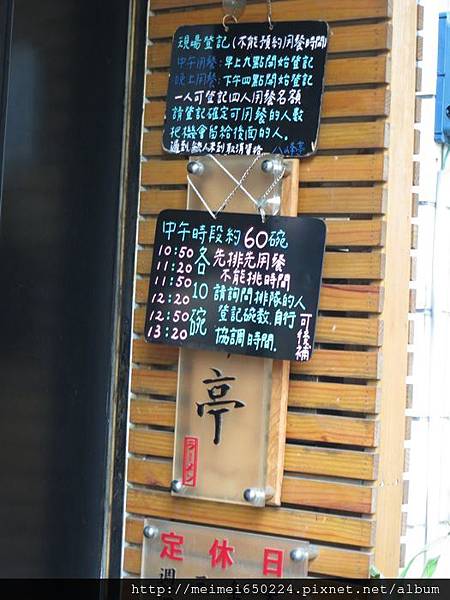 現場登記(不能預約用餐時間)
中午用餐:早上九點開始登記
晚上用餐:下午四點開始登記
一人可登記四人用餐名額
請登記確定可用餐的人數
把機會留給後面的人.
遇到無人未到取消資格 八峰亭
中午時段約60碗
10:50
11:20
11:50
12:20
12:50
13:20
各
10
碗
先排先用餐
不能挑時間
請詢問排隊的人
登記碗數.自行
協調時間.
可後補
亭
ラーメン
定休日
週
http://meimei650224.pixnet.net/album